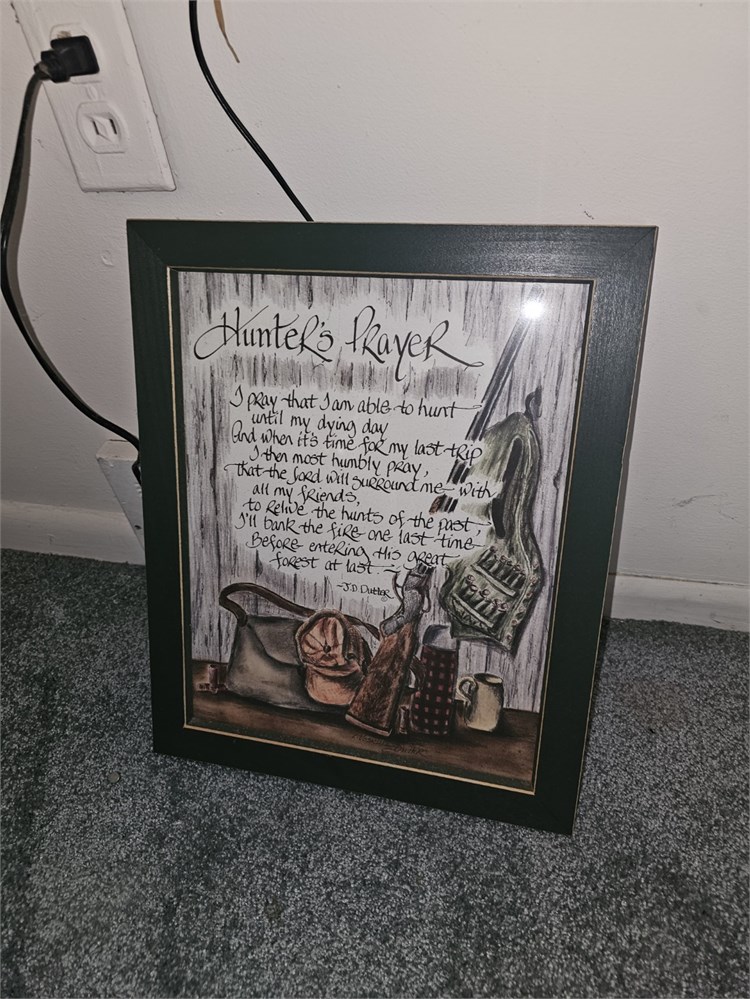 Hunter's Prayer
I pray that I am able to hunt
until my dying day
And when it's time for my last trip
I then most humbly pray,
that the Lord will surround me with
all my friends,
to relive the hunts of the past,
I'll bank the fire one last time
Before entering His great
forest at last.
~J.D. Dutter ©